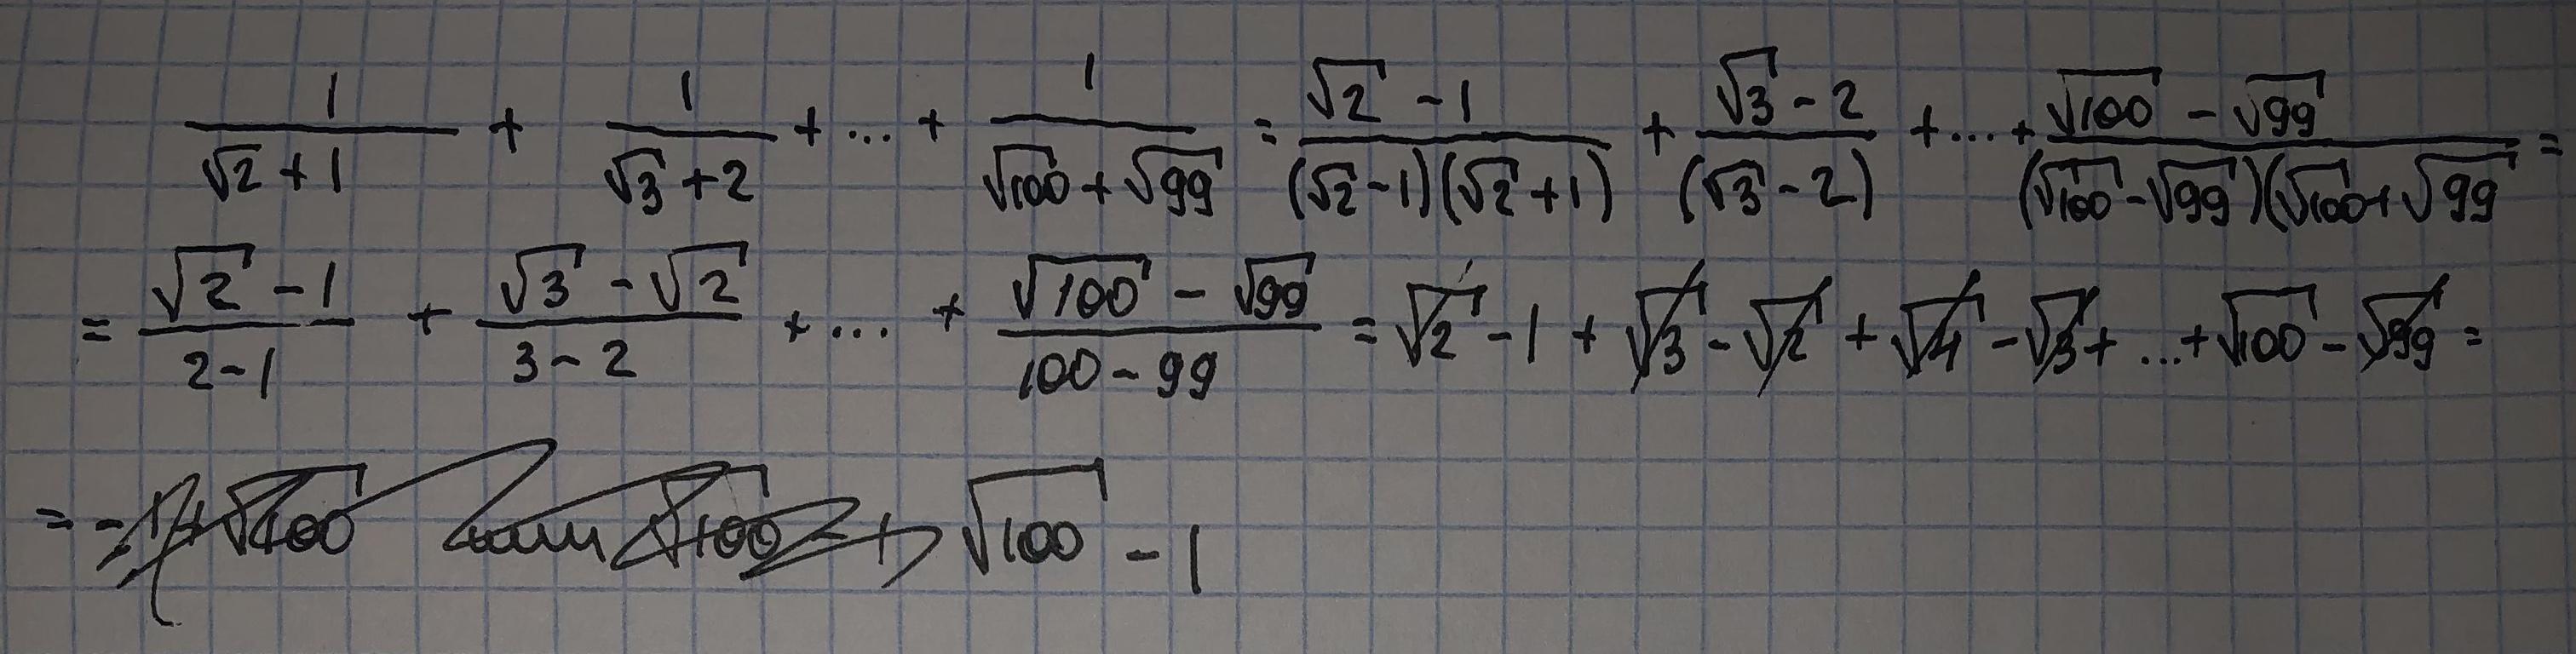 1/(√2+1) + 1/(√3+2) + ... + 1/(√100+√99) = (√2-1)/((√2-1)(√2+1)) + (√3-2)/((√3-2)) + ... + (√100-√99)/((√100-√99)(√100+√99 =
= (√2-1)/(2-1) + (√3-√2)/(3-2) + ... + (√100-√99)/(100-99) = √2-1+√3-√2+√4-√3+...+√100-√99 =
= √100-1